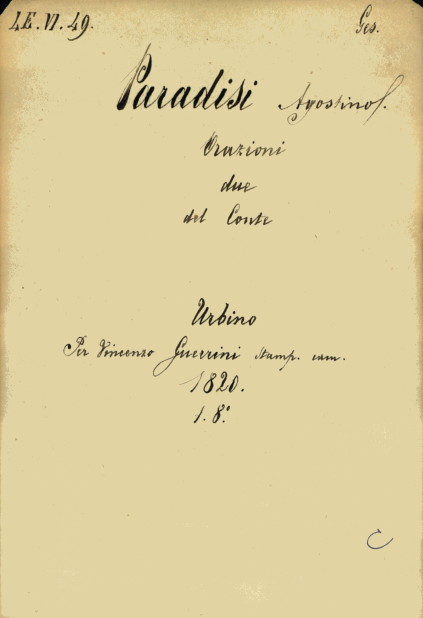 4E.VI.49.
Ges.
Paradisi Agostino.
Orazioni
due
del Conte
Urbino
Per Vincenzo Guerrini Stamp. cam.
1820.
1. 8°
C